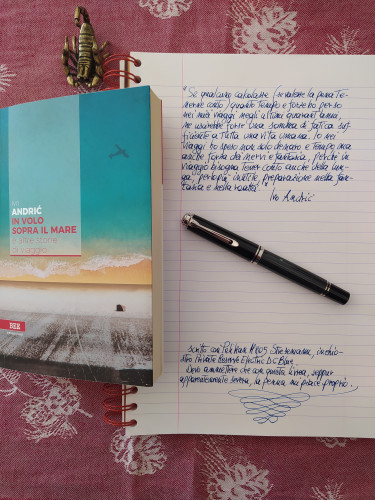 IVO
ANDRIĆ
IN VOLO
SOPRA IL MARE
e altre storie
di viaggio
BEE
"Se qualcuno calcolasse (se valesse la pena te-
nerne conto) quanto tempo e forze ho perso
nei miei viaggi negli ultimi quarant'anni,
ne uscirebbe forse una somma di fatica suf-
ficiente a tutta una vita umana. Io nei
viaggi ho speso non solo denaro e tempo ma
anche forza dei nervi e fantasia, perché in
viaggio bisogna tener conto anche della lun-
ga, per lo più inutile, preparazione nella fan-
tasia e nella realtà."
Ivo Andrić
scritto con Pelikan M805 Stresemann, inchio-
stro Private Reserve Electric DC Blue.
Devo ammettere che con questa livrea, seppur
apparentemente severa, la penna mi piace proprio.